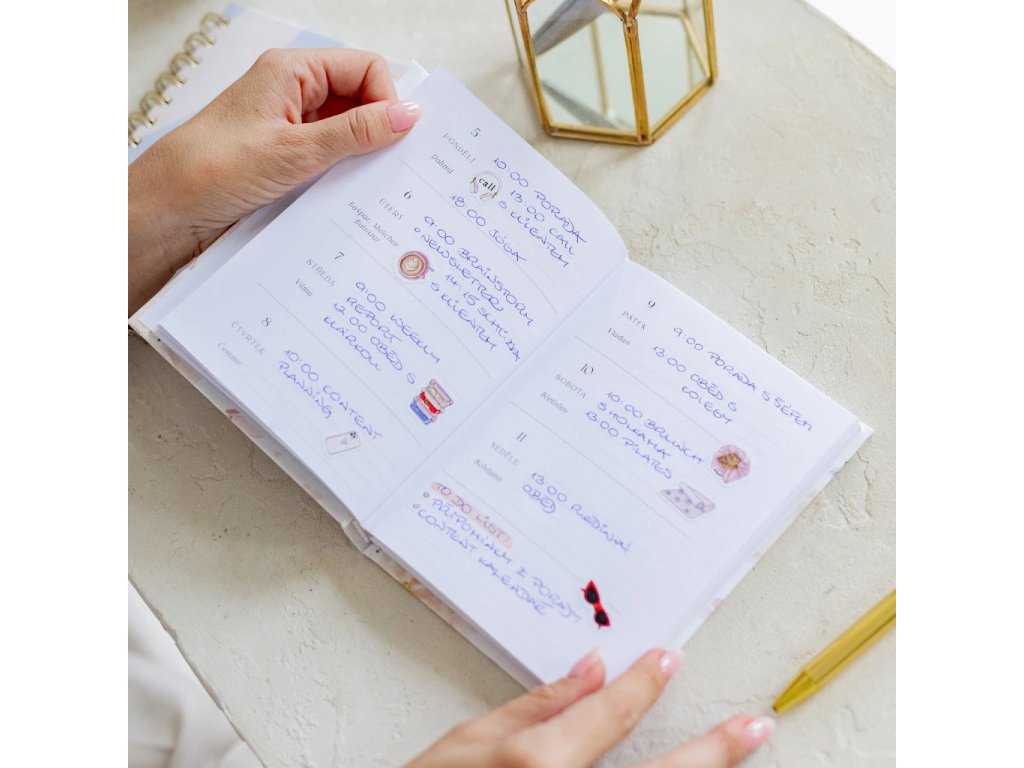 5
PONDĚLÍ
Dalimil
10:00 PORADA
call
13:00 CALL
S KLIENTEM
18:00 JÓGA
6
ÚTERÝ
Kašpar, Melichar,
Baltazar
9:00 BRAINSTORM
• NEWSLETTER
14:15 SCHŮZKA
S KLIENTEM
7
STŘEDA
Vilma
9:00 WEEKLY
REPORT
12:00 OBĚD S
KLÁRKOU
8
ČTVRTEK
Čestmír
10:00 CONTENT
PLANNING
9
PÁTEK
Vladan
9:00 PORADA S ŠÉFEM
13:00 OBĚD S
KOLEGY
10
SOBOTA
Břetislav
10:00 BRUNCH
S HOLKAMA
13:00 PILATES
11
NEDĚLE
Bohdana
13:00 RODINNÝ
OBĚD
TO DO LIST:
• PŘIPOMÍNKY Z PORADY
• CONTENT KALENDÁŘ